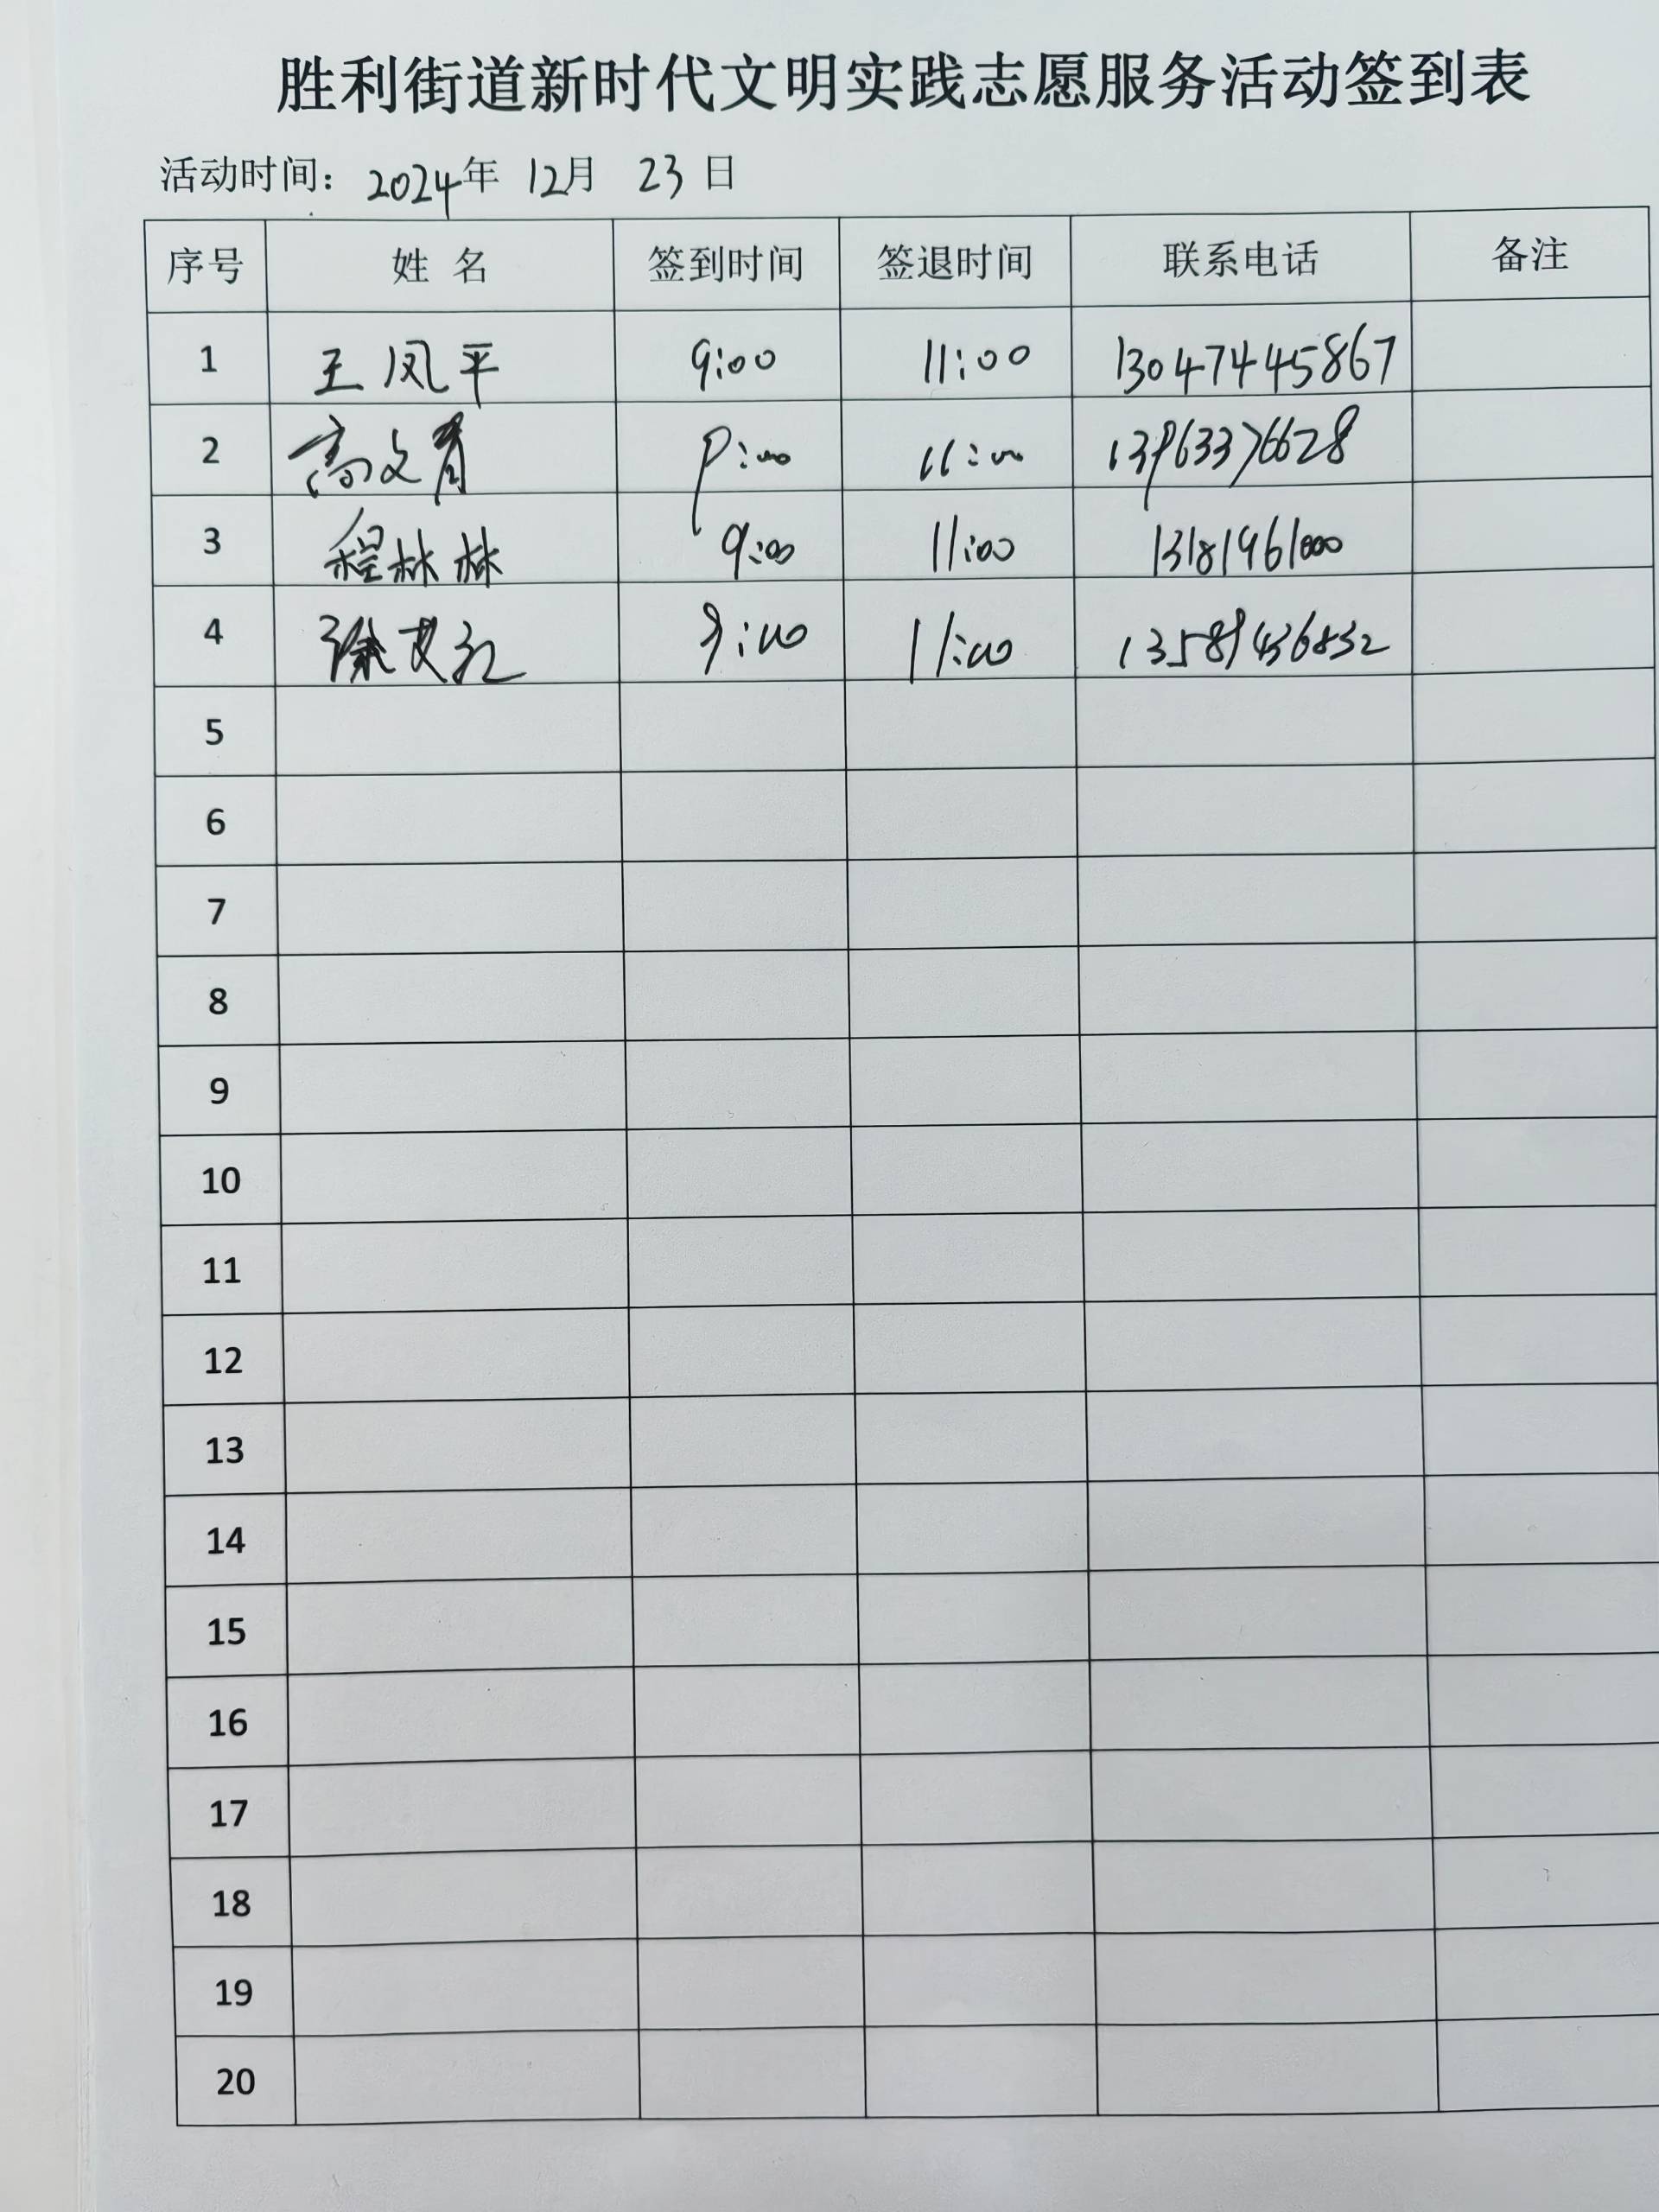 胜利街道新时代文明实践志愿服务活动签到表
活动时间：2024年 12月 23日
序号 姓 名 签到时间 签退时间 联系电话 备注
1 王凤平 9:00 11:00 13047445867
2 高文青 9:00 11:00 13963376628
3 程林林 9:00 11:00 13181961000
4 徐艾红 9:00 11:00 13589436832
5
6
7
8
9
10
11
12
13
14
15
16
17
18
19
20